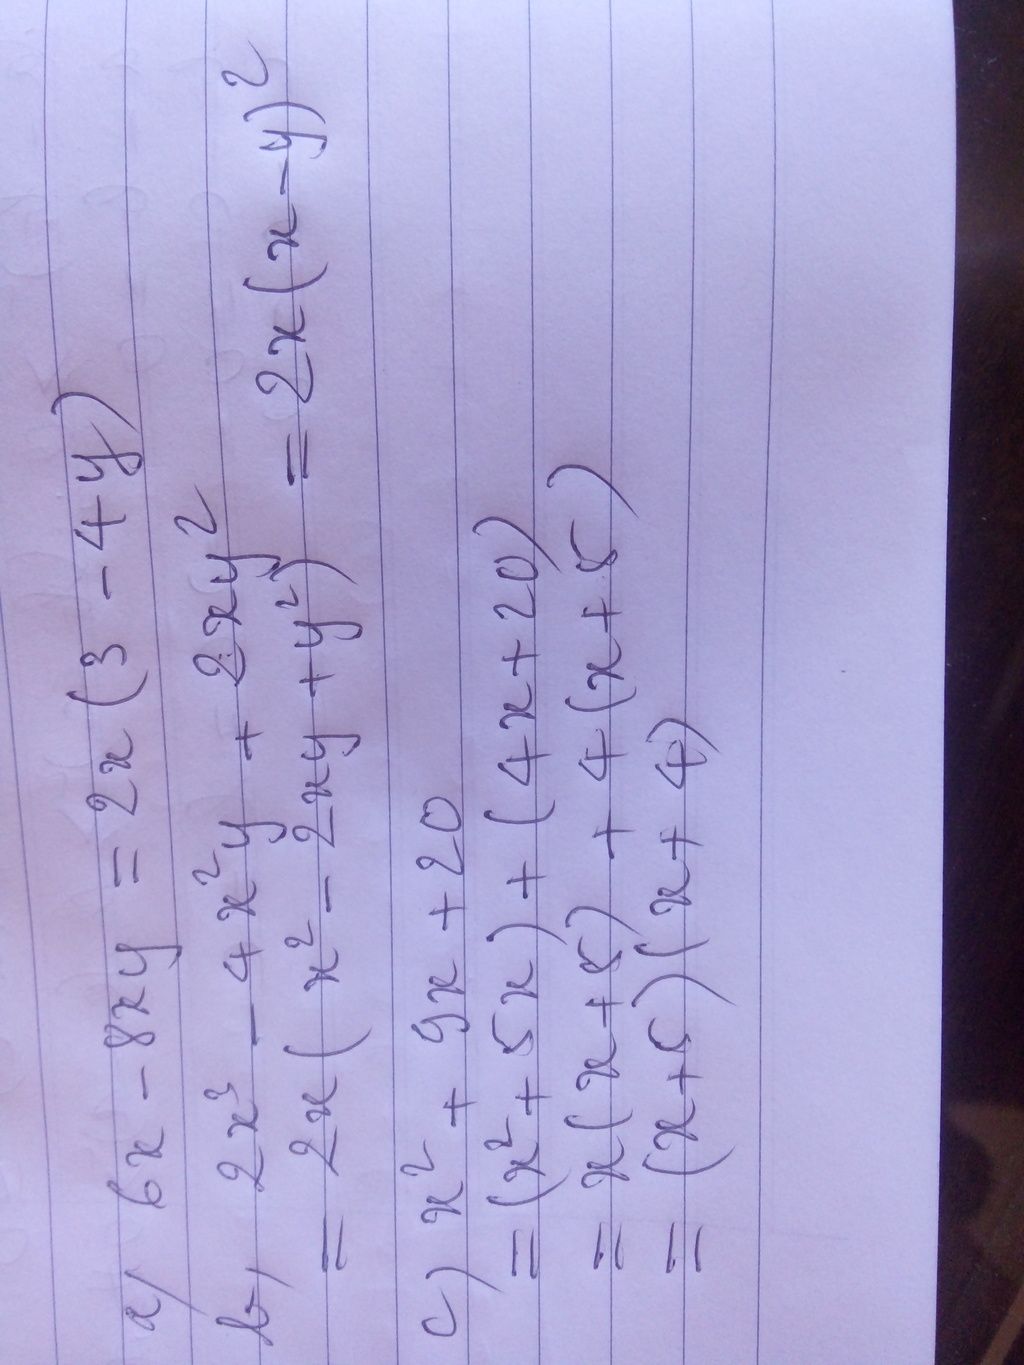 a/ 6x - 8xy = 2x (3 - 4y)
b, 2x³ - 4x²y + 2xy²
= 2x (x² - 2xy + y²) = 2x (x - y)²
c) x² + 9x + 20
= (x² + 5x) + (4x + 20)
= x(x + 5) + 4(x + 5)
= (x + 5) (x + 4)